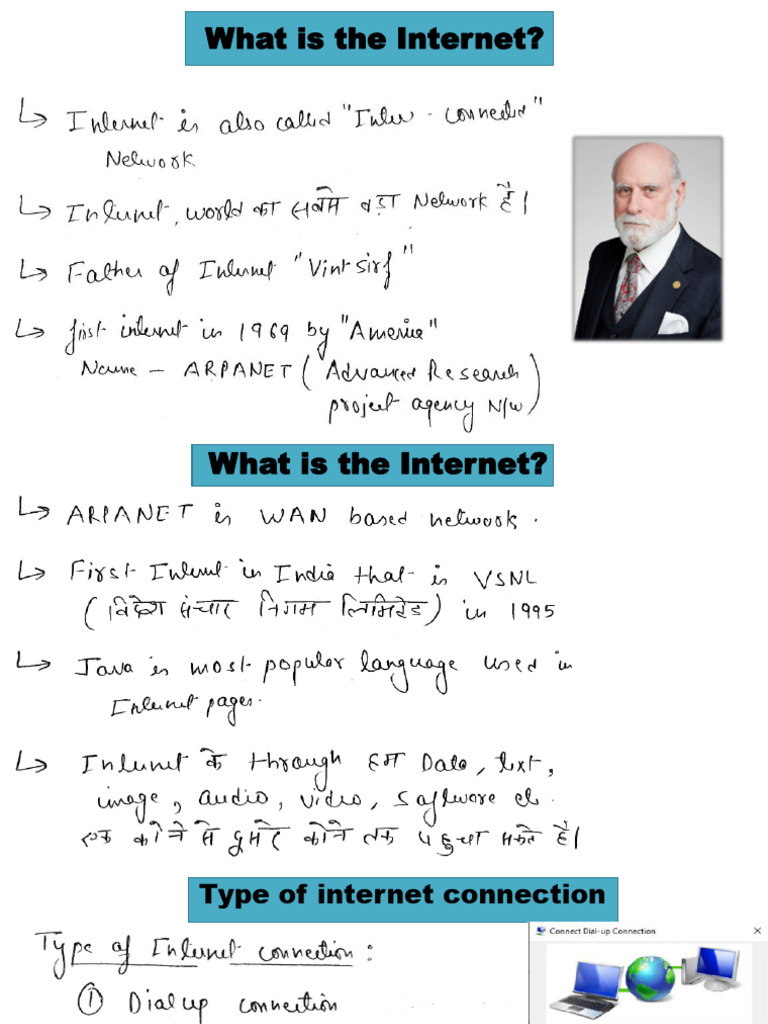 What is the Internet?
↳ Internet is also called "Inter-connected"
Network
↳ Internet, world का सबसे बड़ा Network है।
↳ Father of Internet "Vint sirf"
↳ first internet in 1969 by "America"
Name - ARPANET (Advanced Research
project agency N/w)
What is the Internet?
↳ ARPANET is WAN based network.
↳ First Internet in India that is VSNL
(विदेश संचार निगम लिमिटेड) in 1995
↳ Java is most popular language used in
Internet pages.
↳ Internet के through हम Data, text,
image, audio, video, software etc.
एक कोने से दूसरे कोने तक पहुचा सकते है।
Type of internet connection
Type of Internet connection:
Connect Dial-up Connection
① Dial up connection